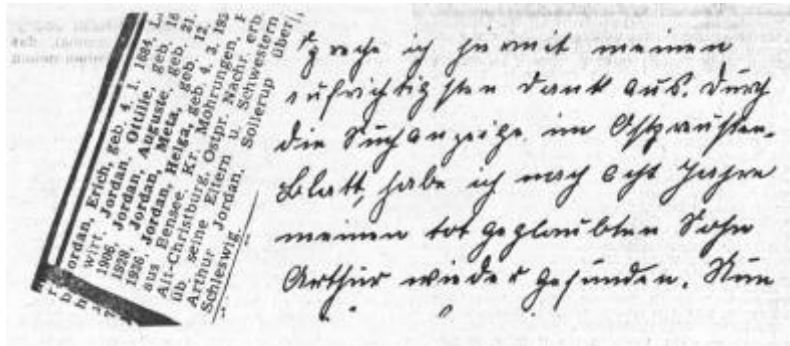 Jordan, Erich, geb. 4. 1. 1884, L
wirt. Jordan, Ottilie, geb. 16
1906, Jordan, Auguste, geb. 21.
1928, Jordan, Meta, geb. 12.
1936, Jordan, Helga, geb. 4. 3. 193
aus Bensee, Kr. Mohrungen, P
Alt-Christburg, Ostpr. Nachr. erb.
üb. seine Eltern u. Schwestern
Arthur Jordan, Sollerup über
Schleswig.
spreche ich hermit meinen
aufrichtigsten dank aus. Durch
die Suchanzeige im Ostpreußen-
Blatt, habe ich nach acht Jahre
meinen tot geglaubten Sohn
Arthur wieder gefunden. Nun